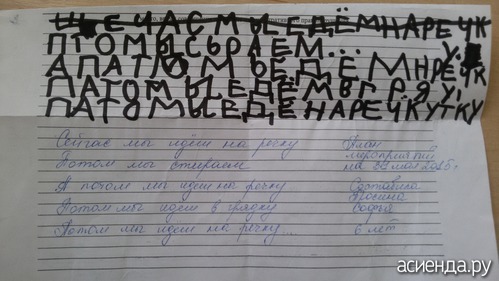 ЩЕЧАС МЫ ЕДЁМ НАРЕЧК
У.
ПТОМЫ СБРАЕМ...
АПАТЮМ МЫ ЕДЁМ НРЕЧК
ПАТОМ Ы ЕДЁМ В Г Р Я У,
ПАТОМ Ы ЕДЁ НАРЕЧКУТКУ
Сейчас мы идём на речку
Потом мы стираем
А потом мы идём на речку
Потом мы идём в грядку
Потом мы идём на речку...
План
мероприятий
на 31 мая 2015г.
Составила
Софья
6 лет
асиенда.ру